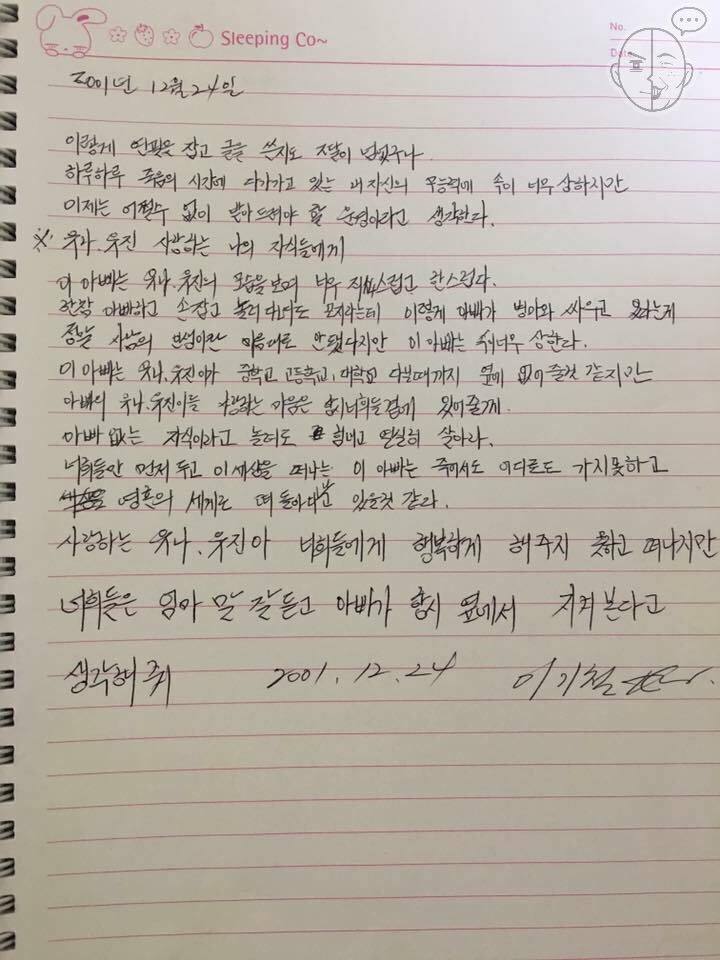 Sleeping Co~
No.
Date
2001년 12월 24일
이렇게 연필을 잡고 글을 쓴지도 2달이 넘었구나
하루하루 죽음의 시간에 다가가고 있는 내 자신의 무능력에 속이 너무 상하지만
이제는 어쩔수 없이 받아드려야 할 운명이라고 생각한다.
※ 유나.유진 사랑하는 나의 자식들에게
이 아빠는 유나.유진의 모습을 보며 너무 자랑스럽고 한스럽다.
한참 아빠하고 손잡고 놀러 다녀도 모자라는데 이렇게 아빠가 병마와 싸우고 있다는게
정말 사람의 인생이란 마음대로 안됀다지만 이 아빠는 속이너무 상한다.
이 아빠는 유나.유진이가 중학교 고등학교, 대학교 다닐때까지 옆에 없어 줄것 같지만
아빠의 유나.유진이를 사랑하는 마음은 항시너희들곁에 있어줄게.
아빠 없는 자식이라고 놀려도 힘내고 열심히 살아라.
너희들만 먼저 두고 이 세상을 떠나는 이 아빠는 죽어서도 어디로도 가지못하고
영혼의 세계로 떠 돌아다니고 있을것 같다.
사랑하는 유나.유진아 너희들에게 행복하게 해주지 못하고 떠나지만
너희들은 엄마 말 잘듣고 아빠가 항시 옆에서 지켜 본다고
생각해 줘 2001.12.24 이기철